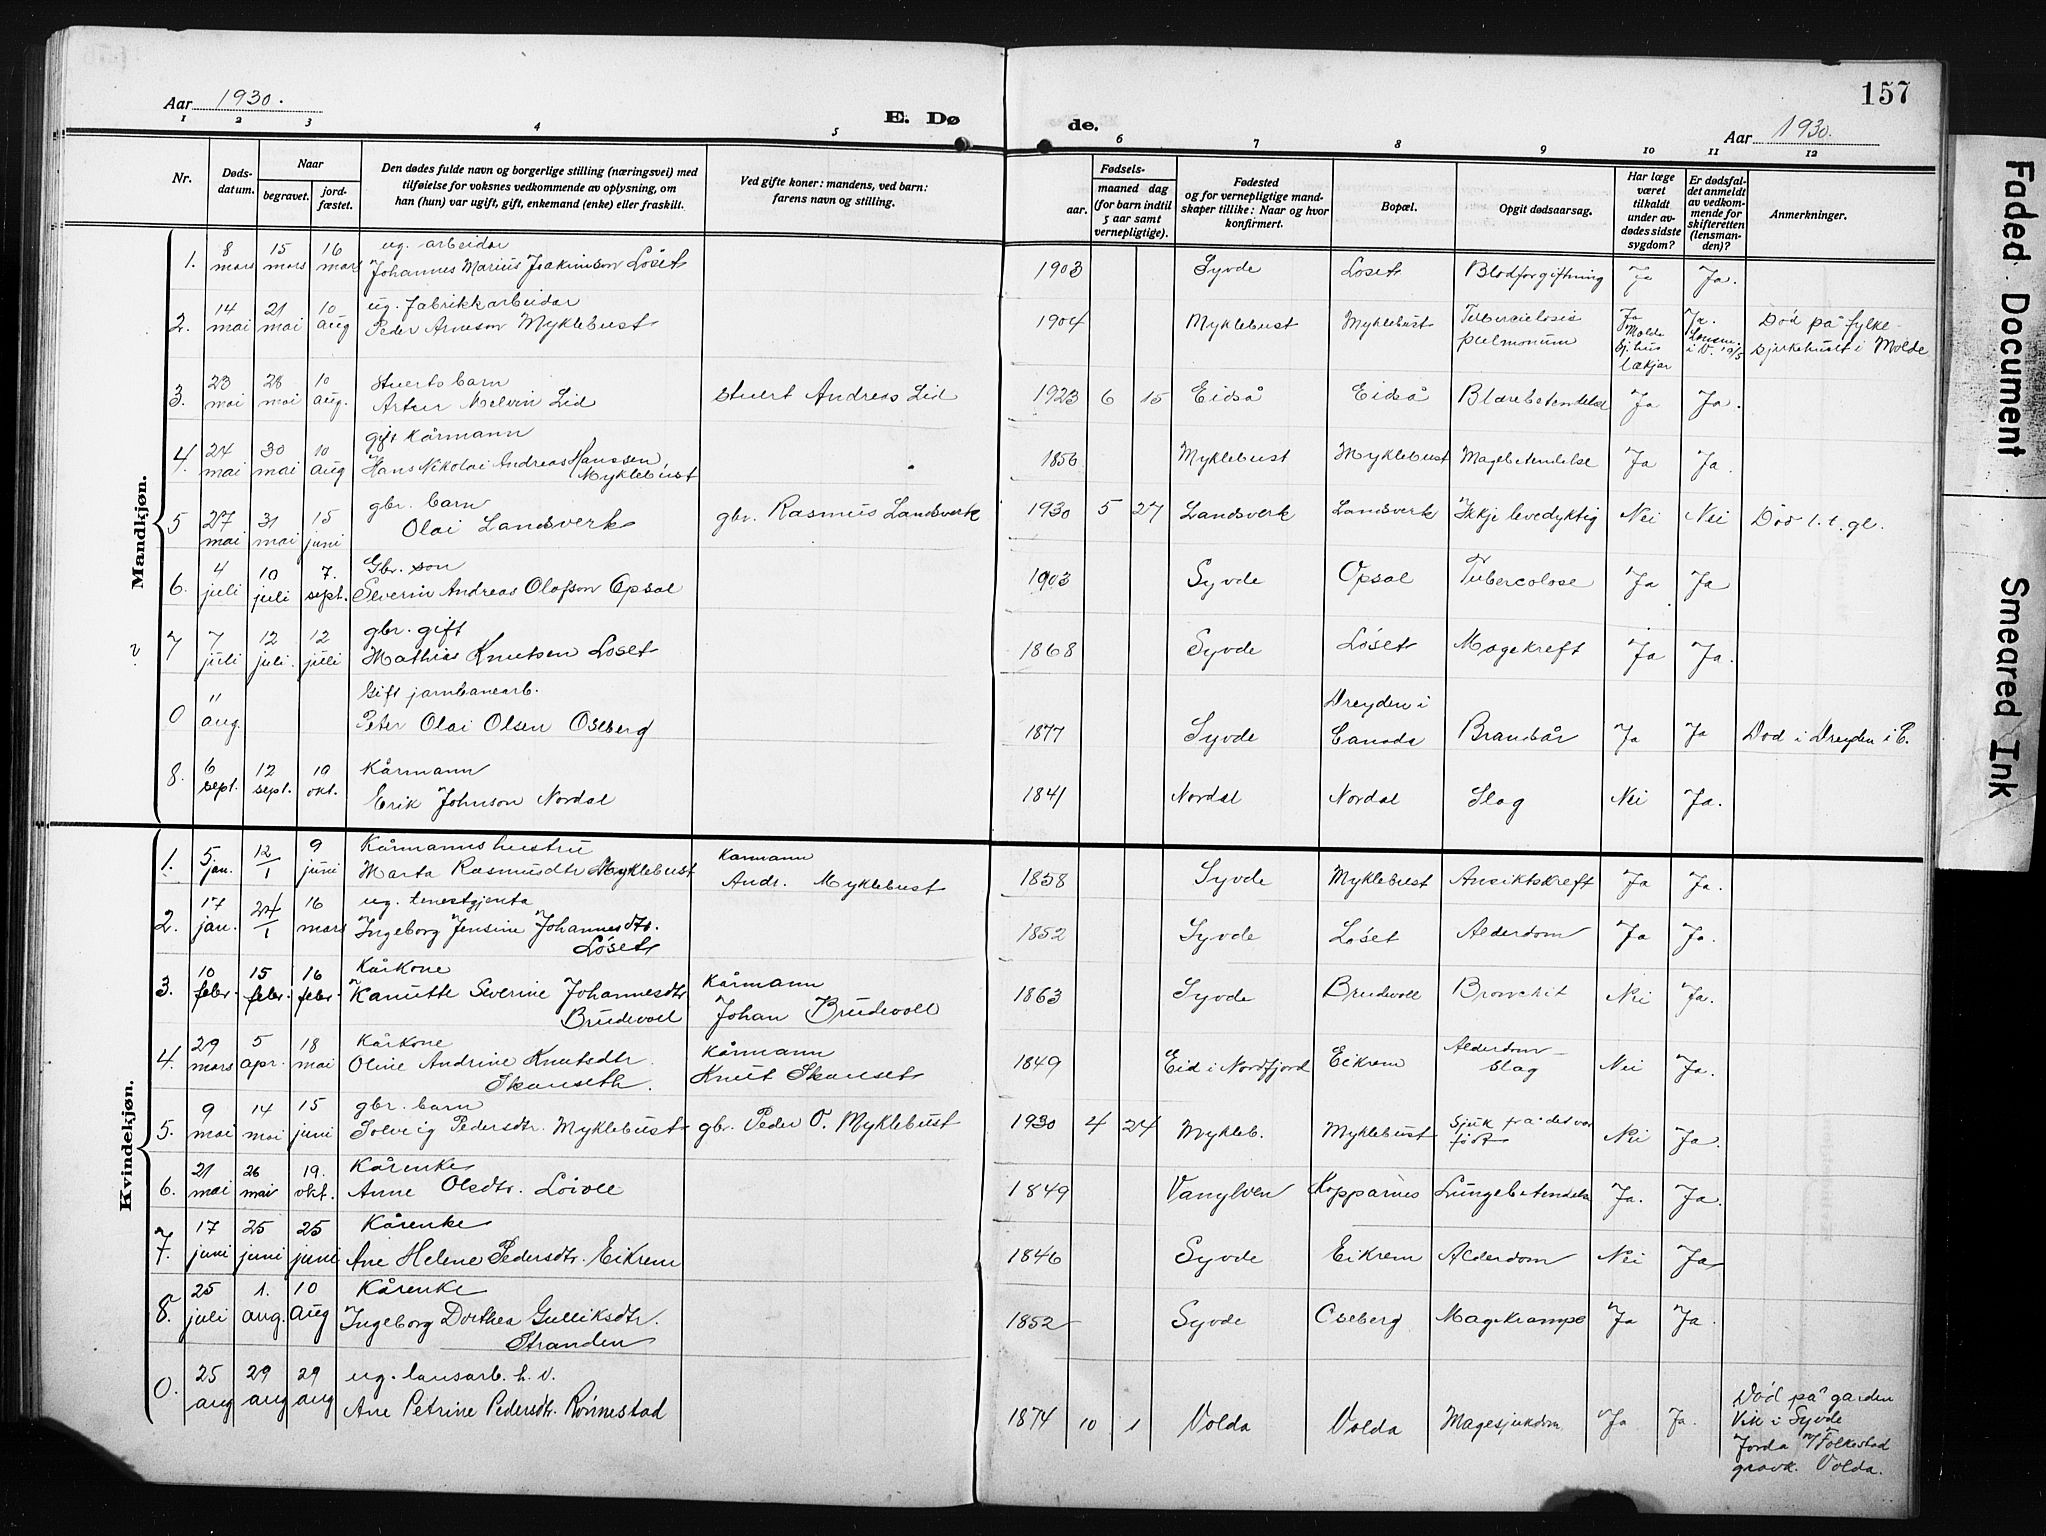 157
Aar 1930.
E. Dø
de.
Aar 1930.
1 2 3 4 5 6 7 8 9 10 11 12
Nr.
Døds-
datum.
Naar
begravet.
jord-
fæstet.
Den dødes fulde navn og borgerlige stilling (næringsvei) med
tilføielse for voksnes vedkommende av oplysning, om
han (hun) var ugift, gift, enkemand (enke) eller fraskilt.
Ved gifte koner: mandens, ved barn:
farens navn og stilling.
Fødsels-
aar.
maaned dag
(for barn indtil
5 aar samt
vernepligtige).
Fødested
og for vernepligtige mand-
skaper tillike: Naar og hvor
konfirmert.
Bopæl.
Opgit dødsaarsag.
Har læge
været
tilkaldt
under av-
dødes sidste
sygdom?
Er dødsfal-
det anmeldt
av vedkom-
mende for
skifteretten
(lensman-
den)?
Anmerkninger.
Mandkjøn.
ug. arbeidar
1. 8 mars 15 mars 16 mars Johannes Marius Joakimson Löset 1903 Syvde Löset Blodforgiftning Ja Ja.
ug. fabrikkarbeidar
2. 14 mai 21 mai 10 aug Peder Arneson Myklebust 1904 Myklebust Myklebust Tuberculosis pulmonum Ja Molde sj.hus lækjar Ja. Lensm. i V. 19/5 Död på fylke-
sjukehuset i Molde
Stuerts barn
3. 23 mai 28 mai 10 aug. Artur Melvin Lid stuert Andreas Lid 1923 6 15 Eidså Eidså Blærebetendelse Ja Ja.
gift Kårmann
4. 24 mai 30 mai 10 aug Hans Nikolai Andreas Hanssen
Myklebust 1856 Myklebust Myklebust Magebetendelse Ja Ja.
gbr. barn
5 27 mai 31 mai 15 juni Olai Landsverk gbr. Rasmus Landsverk 1930 5 27 Landsverk Landsverk Ikkje levedyktig Nei Nei Död 1. t. gl.
Gbr. son
6. 4 juli 10 juli 7. sept. Severin Andreas Olafson Opsal 1903 Syvde Opsal Tubercolose Ja Ja
gbr. gift
7 7 juli 12 juli. 12 juli Mathias Knutsen Löset 1868 Syvde Löset Magekreft Ja Ja.
Gift jarnbanearb.
0 " aug. Peter Olai Olsen Oseberg 1877 Syvde Dreyden i Canada Brandsår Ja Ja Död i Dreyden i C.
Kårmann
8. 6 sept. 12 sept. 19 okt. Erik Johnson Nordal 1841 Nordal Nordal Slag Nei Ja.
Kvindekjøn.
Kårmannshustru
1. 5. jan. 12/1 9 juni Marta Rasmusdtr Myklebust Kårmann
Andr. Myklebust 1858 Syvde Myklebust Ansiktskreft Ja Ja.
ug. tenestgjenta
2. 17 jan. 24/1 16 mars Ingeborg Jensine Johannesdtr.
Löset 1852 Syvde Löset Alderdom Ja Ja.
Kårkone
3. 10 febr. 15 febr. 16 febr. Kanutte Severine Johannesdtr
Brudevoll Kårmann
Johan Brudevoll 1863 Syvde Brudevoll Bronchit Nei Ja.
Kårkone
4. 29 mars 5 apr. 18 mai Oline Andrine Knutsdtr.
Skanseth. Kårmann
Knut Skanset 1849 Eid i Nordfjord Eikrem Alderdom-
slag Nei Ja.
gbr. barn
5. 9 mai 14 mai 15 juni Solveig Pedersdtr. Myklebust gbr. Peder O. Myklebust 1930 4 24 Mykleb. Myklebust Sjuk frå det var
födt Nei Ja.
Kårenke
6. 21 mai 26 mai 19. okt. Anne Olsdtr. Lövoll 1849 Vanylven Kopparnes Lungebetendelse Ja. Ja.
Kårenke
7. 17 juni 25 juni 25 juni Ane Helene Pedersdtr. Eikrem 1846 Syvde Eikrem Alderdom Nei Ja
Kårenke
8. 25 juli 1. aug. 10 aug Ingeborg Dorthea Gulliksdtr.
Stranden 1852 Syvde Oseberg Magekrampe Ja Ja.
ug. lausarb. h. v.
0. 25 aug 29 aug 29 aug Ane Petrine Pedersdtr. Rönnestad 1874 10 1 Volda Volda Magesjukdom Ja Ja. Död på garden
Vik i Syvde
Jorda v/Folkestad
gravk. Volda.
Faded Document
Smeared Ink